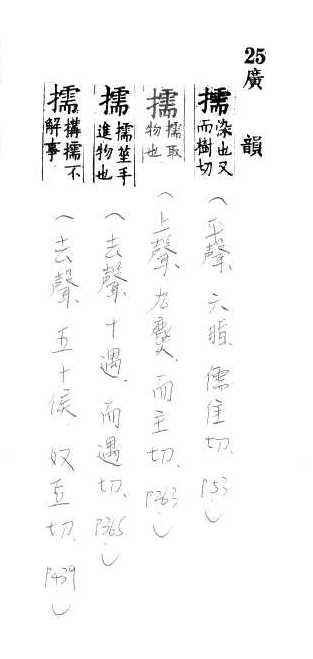 25廣韻
擩染也又而樹切
(平聲、六脂、儒隹切、P.53)
擩擩取物也
(上聲、九麌、而主切、P263)
擩擩莖手進物也
(去聲、十遇、而遇切、P365)
擩搆擩不解事
(去聲、五十候、奴豆切、P439)